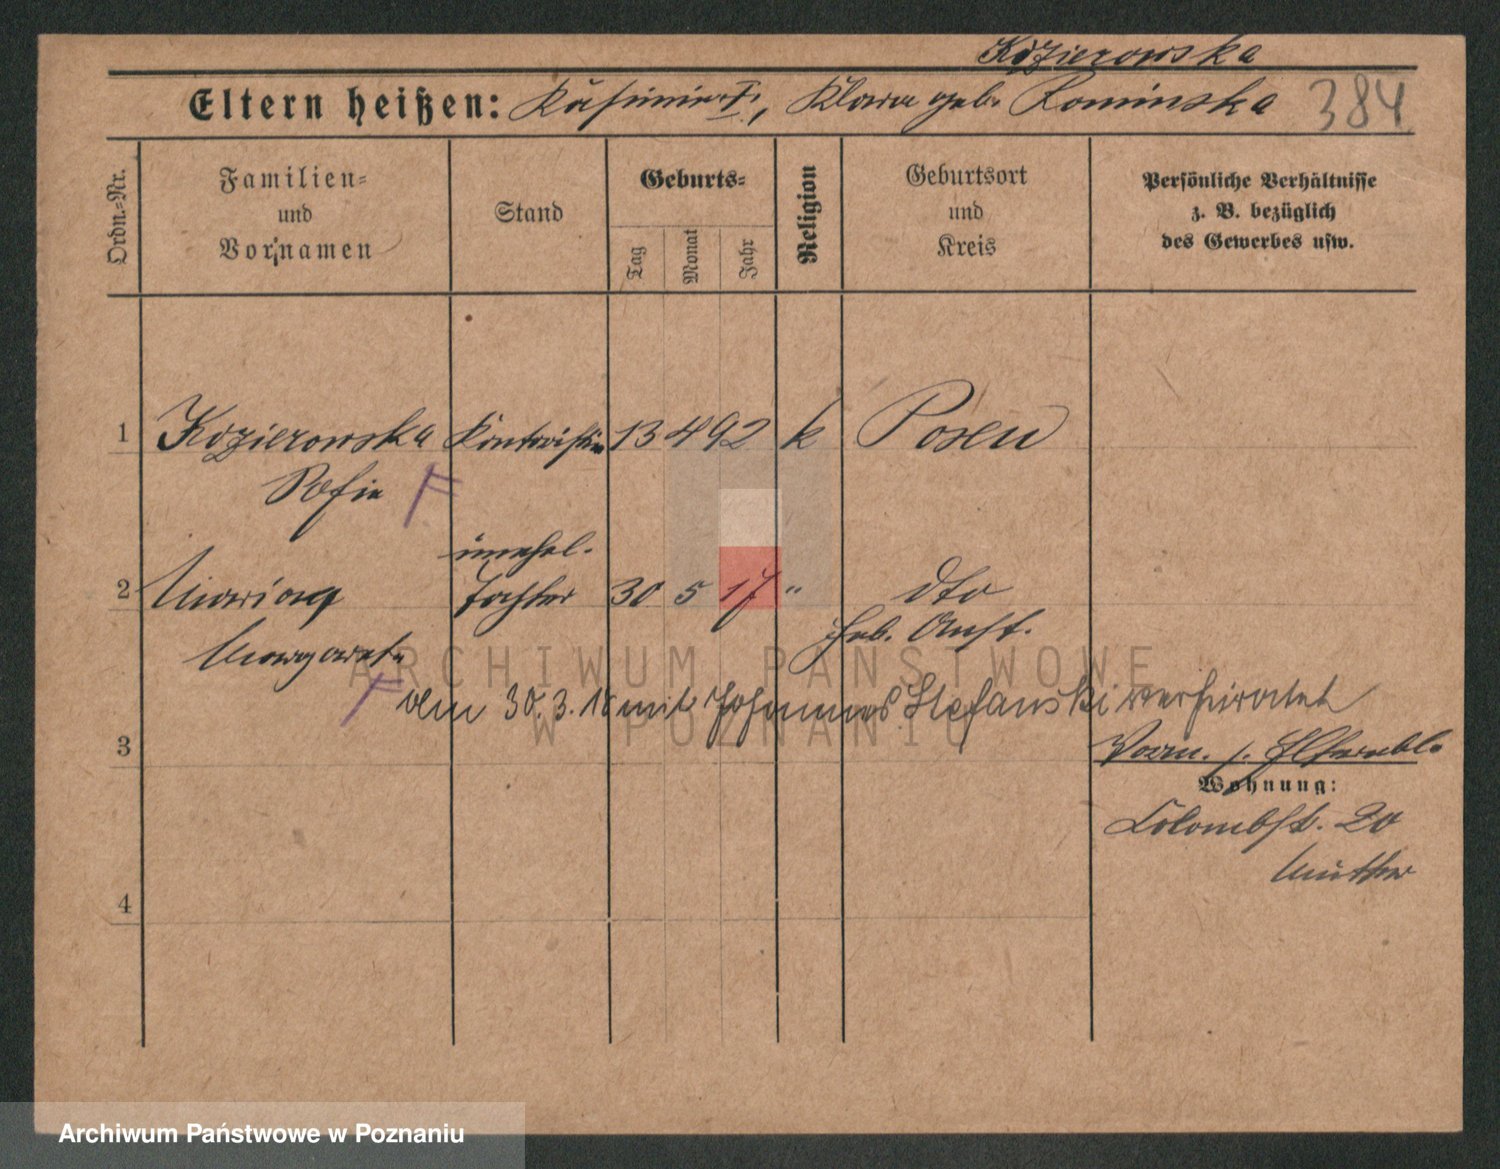 Kozierowska
Eltern heißen: Kasimir †, Klara geb. Rominska 384
Ordn.-Nr.
Familien-
und
Vornamen
Stand
Geburts-
Tag
Monat
Jahr
Religion
Geburtsort
und
Kreis
Persönliche Verhältnisse
z. B. bezüglich
des Gewerbes usw.
1 Kozierowska Kontoristin 13 4 92 k Posen
Sofie
unehel.
2 Marianna Tochter 30 5 17 " dto
Heb. Anst.
Margarete
am 30.3.18 mit Johannes Stefanski verheiratet
3
Vorm. s. Elternbl.
Wohnung:
Colombstr. 20
Mutter
4
ARCHIWUM PAŃSTWOWE
W POZNANIU
Archiwum Państwowe w Poznaniu